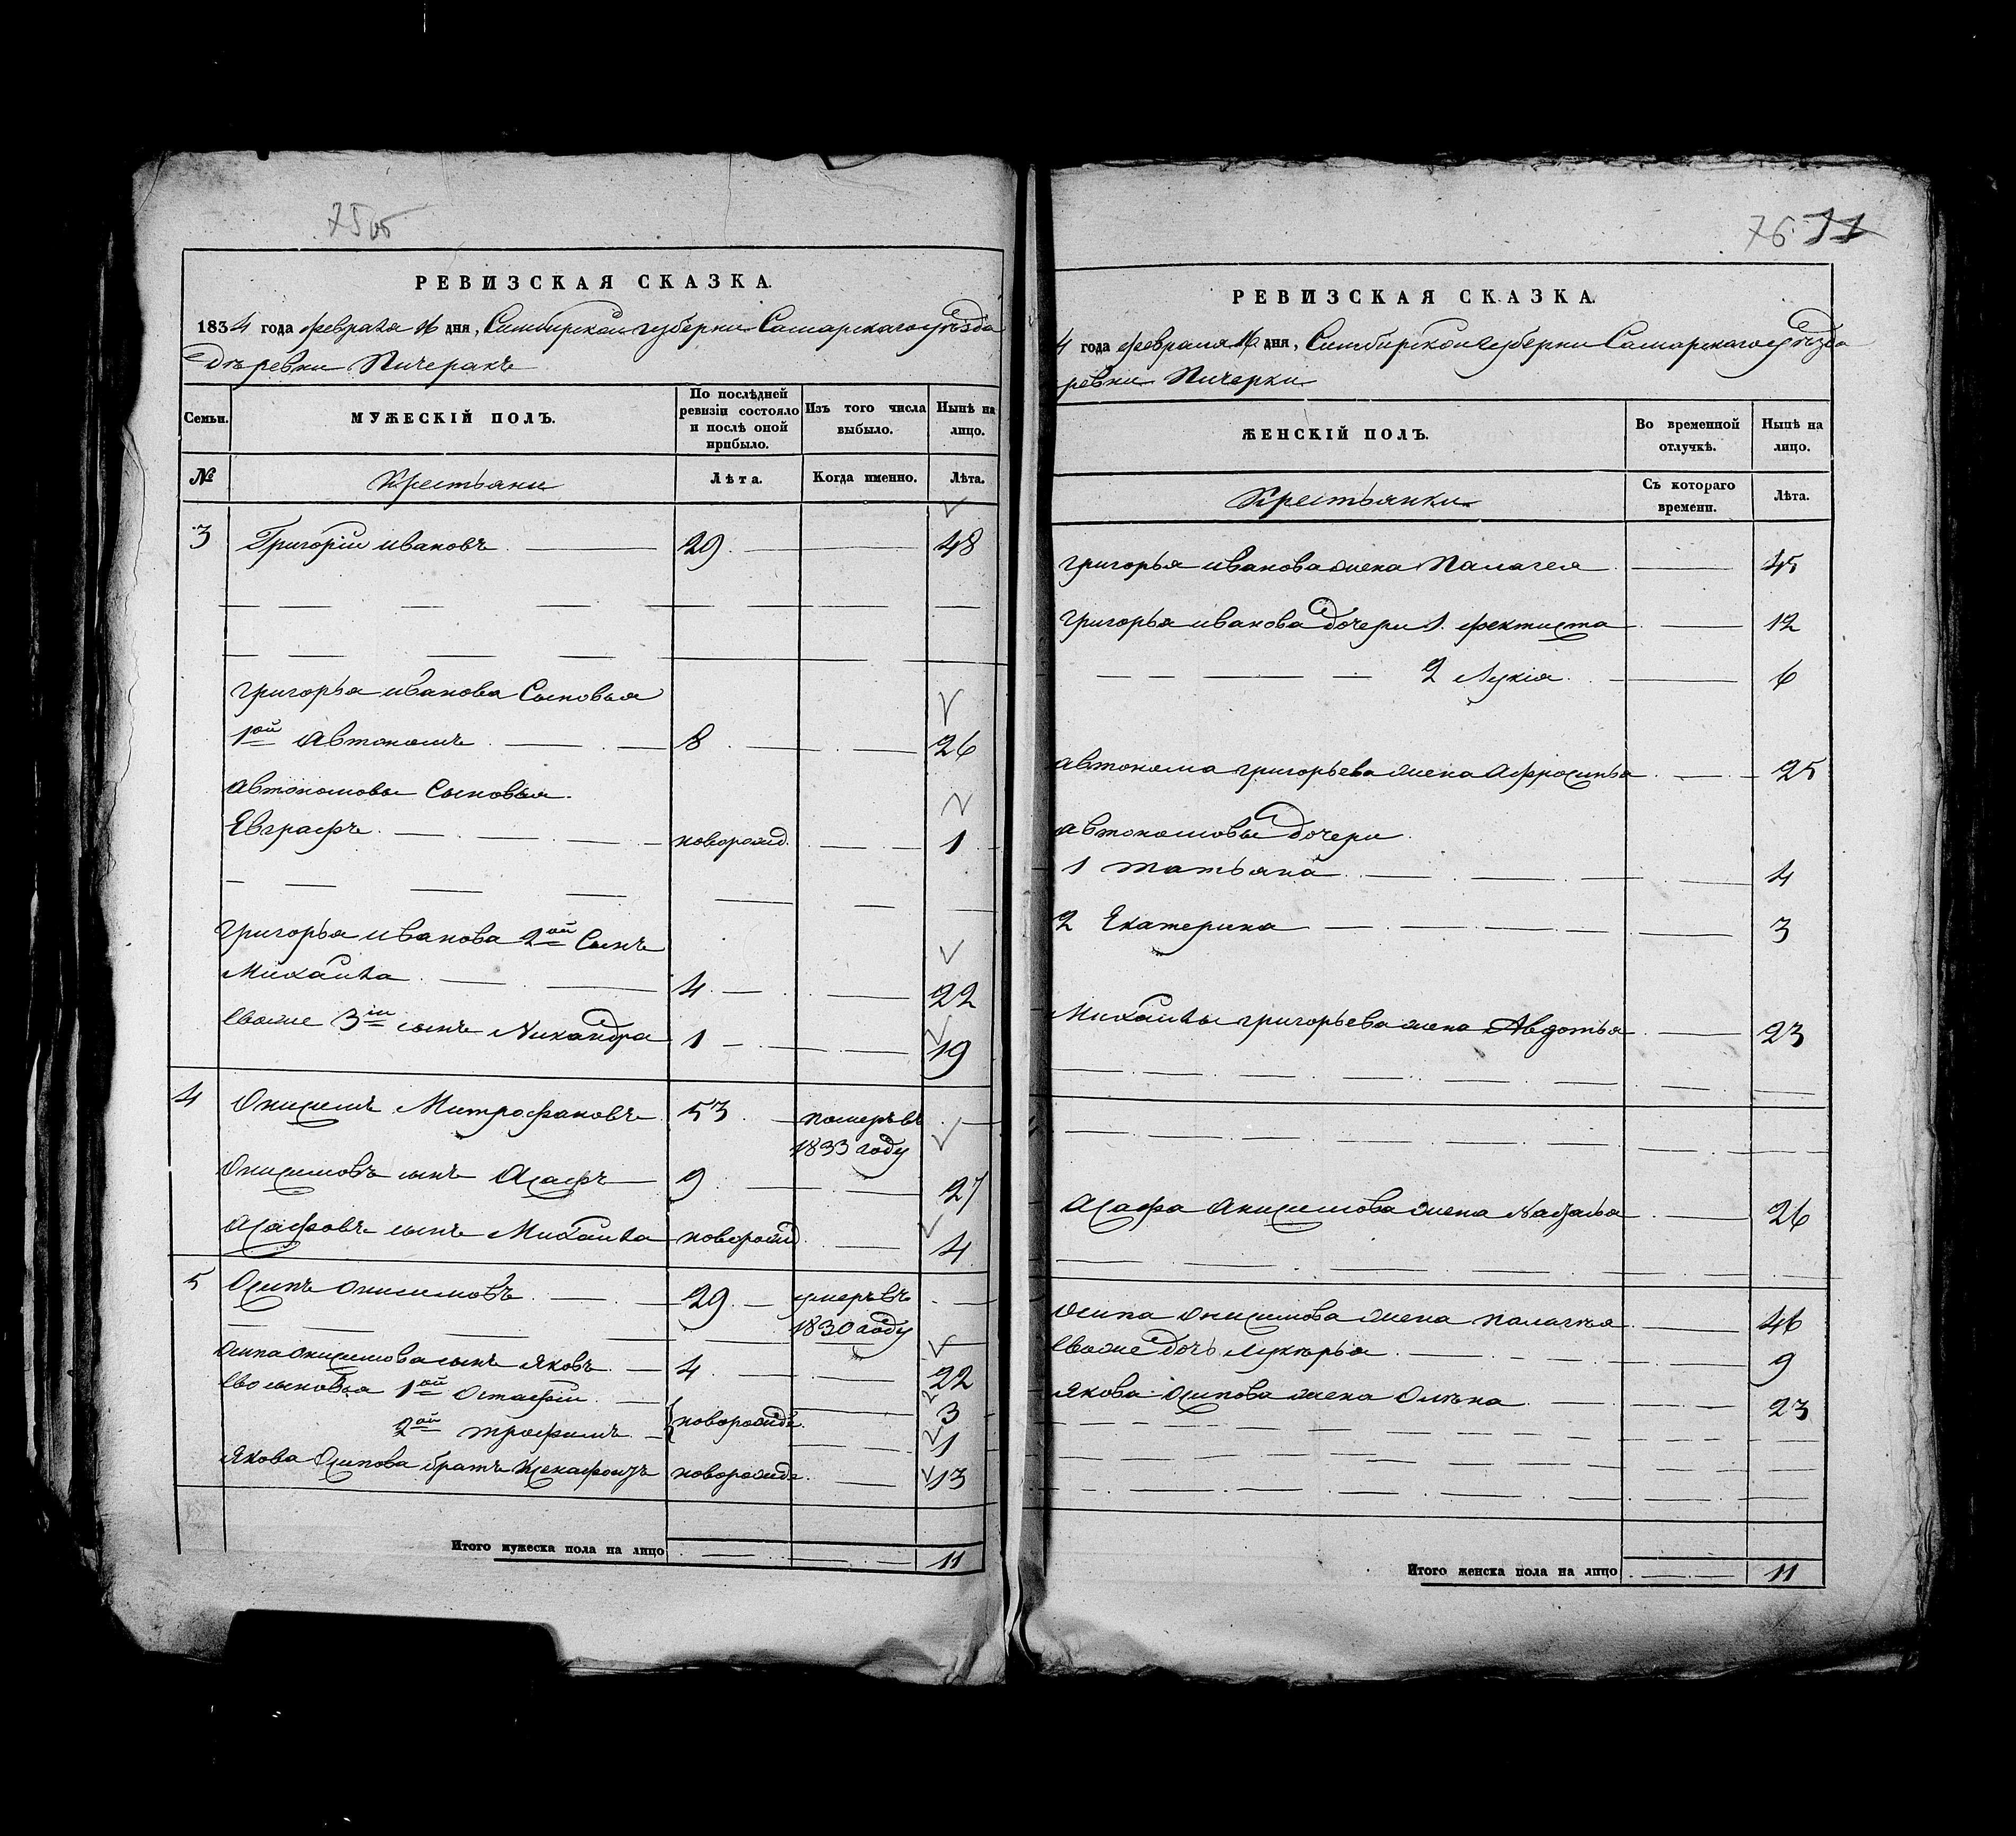 75об
РЕВИЗСКАЯ СКАЗКА.
1834 года февраля 16 дня, Симбирской губернии Самарскаго уѣзда
Деревни Пичеракъ
Семьи.
МУЖЕСКІЙ ПОЛЪ.
По послѣдней ревизіи состояло и послѣ оной прибыло.
Изъ того числа выбыло.
Нынѣ на лицо.
№
Крестьяни
Лѣта.
Когда именно.
Лѣта.
3 Григорій ивановъ 29 48
григорья иванова Сыновья
1ой Автономъ 8 26
автономовы Сыновья
Евграфъ новорожд. 1
григорья иванова 2ой Сынъ
Михайла 4 22
Евоже 3ій сынъ Никандра 1 19
4 Онисимъ Митрофановъ 53 померъ въ
1833 году
Онисимовъ сынъ Асафъ 9 27
Асафовъ сынъ Михайла новорожд. 4
5 Осипъ онисимовъ 29 умеръ въ
1830 году
осипа онисимова сынъ яковъ 4 22
Ево сыновья 1ой Остафій 3
новорожде.
2ой трофимъ 1
якова Осипова братъ новорожде. 13
Итого мужеска пола на лицо 11
76 11
РЕВИЗСКАЯ СКАЗКА.
4 года февраля 16 дня, Симбирской губернии Самарскаго уѣзда
ревни Пичерки
ЖЕНСКІЙ ПОЛЪ.
Во временной отлучкѣ.
Нынѣ на лицо.
Крестьянки
Съ котораго времени.
Лѣта.
григорья иванова жена Палагея 45
григорья иванова дочери 1. фектиста 12
2 Лукія 6
автонома григорьева жена Афросинья 25
автономовы дочери
1 татьяна 4
2 Екатерина 3
Михайлы григорьева жена Авдотья 23
Асафа Анисимова жена Наталья 26
осипа онисимова жена палагѣя 46
Евоже дочь лукѣрья 9
якова осипова жена Олѣна 23
Итого женска пола на лицо 11